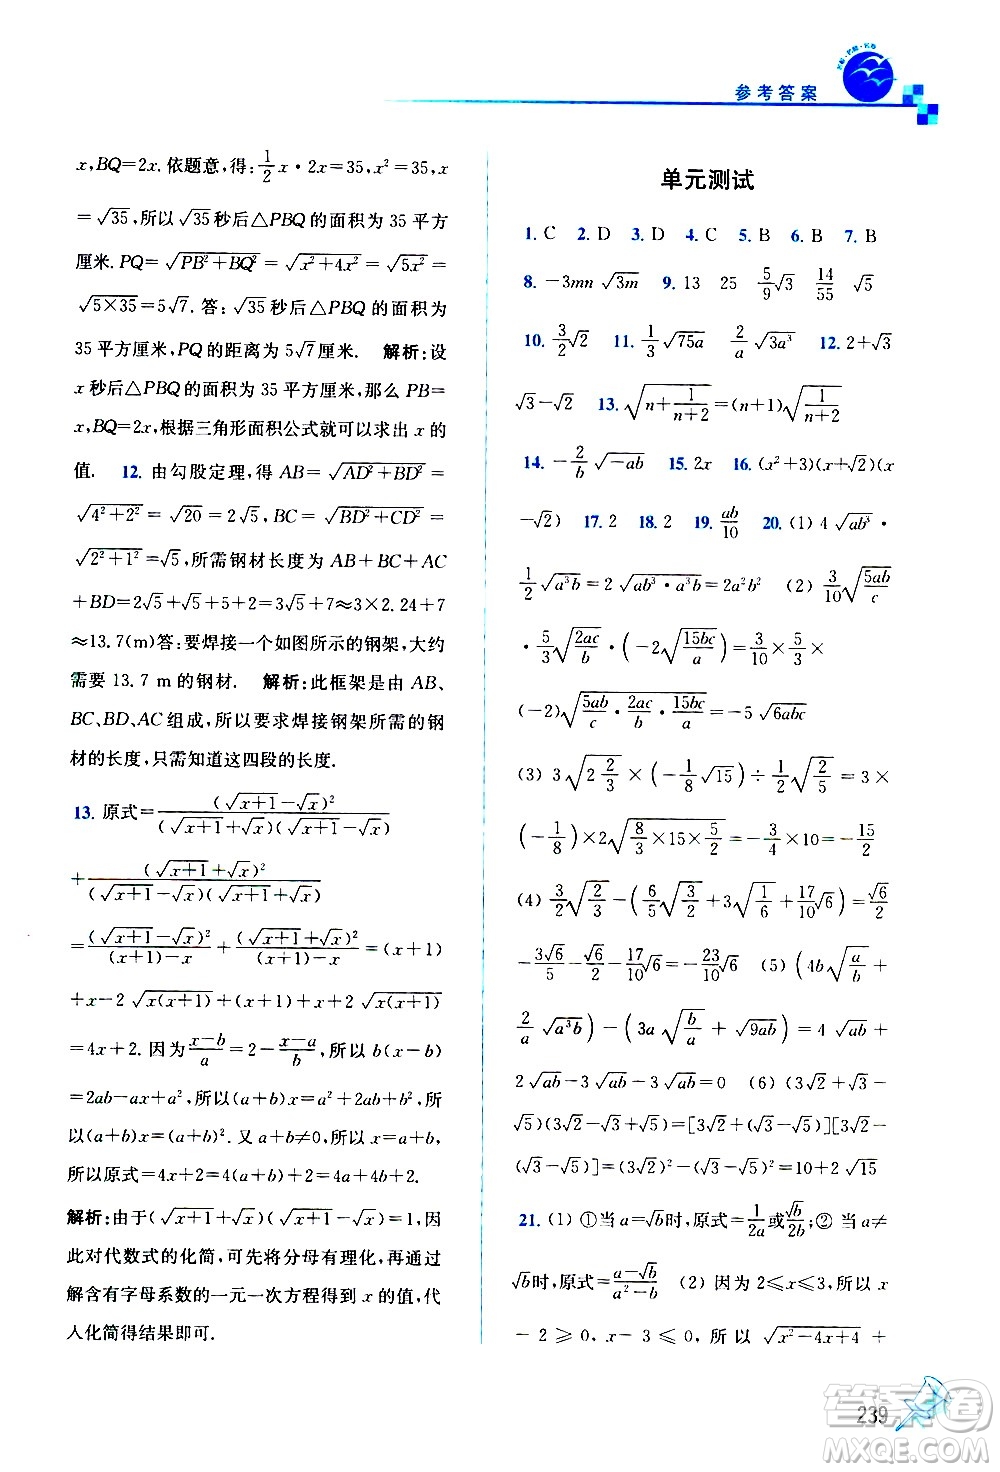 名师·名题·名卷
参考答案
x,BQ=2x. 依题意,得:1/2 x·2x=35,x²=35,x
=√35,所以√35秒后△PBQ的面积为35平方
厘米.PQ=√(PB²+BQ²)=√(x²+4x²)=√(5x²)=
√(5×35)=5√7. 答:√35秒后△PBQ的面积为
35平方厘米,PQ的距离为5√7厘米. 解析:设
x秒后△PBQ的面积为35平方厘米,那么PB=
x,BQ=2x,根据三角形面积公式就可以求出x的
值. 12. 由勾股定理,得AB=√(AD²+BD²)=
√(4²+2²)=√20=2√5,BC=√(BD²+CD²)=
√(2²+1²)=√5,所需钢材长度为AB+BC+AC
+BD=2√5+√5+5+2=3√5+7≈3×2.24+7
≈13.7(m)答:要焊接一个如图所示的钢架,大约
需要13.7 m的钢材. 解析:此框架是由AB、
BC、BD、AC组成,所以要求焊接钢架所需的钢
材的长度,只需知道这四段的长度.
13. 原式=(√(x+1)-√x)²/((√(x+1)+√x)(√(x+1)-√x))
+(√(x+1)+√x)²/((√(x+1)-√x)(√(x+1)+√x))
=(√(x+1)-√x)²/((x+1)-x)+(√(x+1)+√x)²/((x+1)-x)=(x+1)
+x-2√(x(x+1))+x+1+x+2√(x(x+1))
=4x+2. 因为(x-b)/a=2-(x-a)/b,所以b(x-b)
=2ab-ax+a²,所以(a+b)x=a²+2ab+b²,所
以(a+b)x=(a+b)². 又a+b≠0,所以x=a+b,
所以原式=4x+2=4(a+b)+2=4a+4b+2.
解析:由于(√(x+1)+√x)(√(x+1)-√x)=1,因
此对代数式的化简,可先将分母有理化,再通过
解含有字母系数的一元一次方程得到x的值,代
人化简得结果即可.
单元测试
1. C 2. D 3. D 4. C 5. B 6. B 7. B
8. -3mn√(3m) 9. 13 25 5/9 √3 14/55 √5
10. 3/2 √2 11. 1/3 √(75a) 2/a √(3a³) 12. 2+√3
√3-√2 13. √(n+1/(n+2))=(n+1)√(1/(n+2))
14. -2/b √(-ab) 15. 2x 16. (x²+3)(x+√2)(x
-√2) 17. 2 18. 2 19. ab/10 20. (1) 4√(ab³)·
1/2 √(a³b)=2√(ab³·a³b)=2a²b² (2) 3/10 √(5ab/c)
·5/3 √(2ac/b)·(-2√(15bc/a))=3/10×5/3×
(-2)√(5ab/c·2ac/b·15bc/a)=-5√(6abc)
(3) 3√(2 2/3)×(-1/8 √15)÷1/2 √(2/5)=3×
(-1/8)×2√(8/3×15×5/2)=-3/4×10=-15/2
(4) 3/2 √(2/3)-(6/5 √(3/2)+3√(1/6)+17/10 √6)=√6/2
-3√6/5-√6/2-17/10 √6=-23/10 √6 (5) (4b√(a/b)+
2/a √(a³b))-(3a√(b/a)+√(9ab))=4√(ab)+
2√(ab)-3√(ab)-3√(ab)=0 (6) (3√2+√3-
√5)(3√2-√3+√5)=[3√2+(√3-√5)][3√2-
(√3-√5)]=(3√2)²-(√3-√5)²=10+2√15
21. (1) ①当a=√b时,原式=1/2a或√b/2b;②当a≠
√b时,原式=(a-√b)/(a²-b) (2) 因为2≤x≤3,所以x
-2≥0,x-3≤0,所以√(x²-4x+4)+
239
答案圈
MXQE.COM